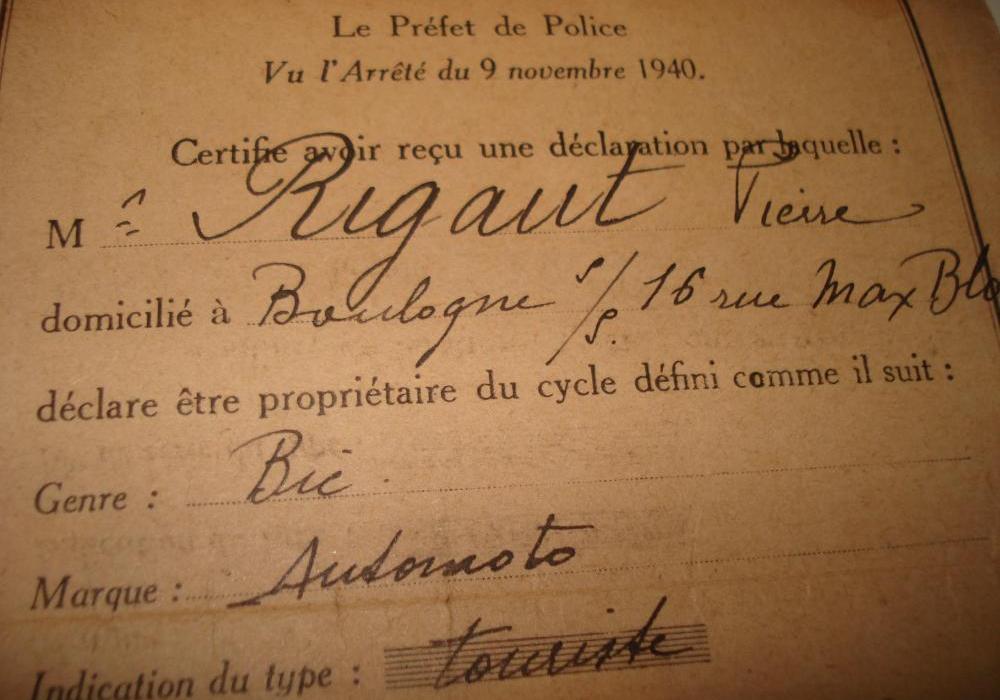 Le Préfet de Police
Vu l'Arrêté du 9 novembre 1940.
Certifie avoir reçu une déclaration par laquelle :
M Rigaut Pierre
domicilié à Boulogne s/S. 16 rue Max Blo
déclare être propriétaire du cycle défini comme il suit :
Genre : Bic
Marque : Automoto
Indication du type : touriste